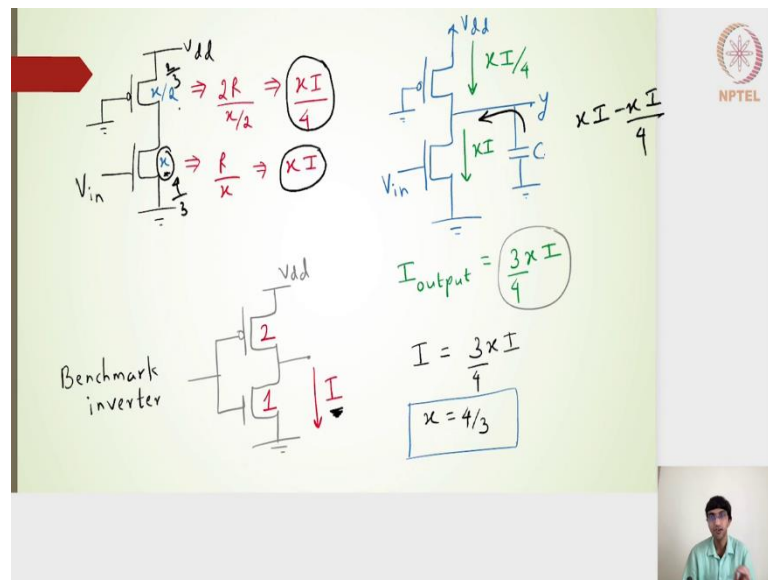 Vdd
2/3
x/2 ⇒ 2R/(x/2) ⇒ xI/4
x ⇒ R/x ⇒ xI
4/3
Vin
Vdd
xI/4
y
xI
C
Vin
xI - xI/4
NPTEL
I output = 3/4 xI
Vdd
2
1
I
Benchmark
inverter
I = 3xI/4
x = 4/3